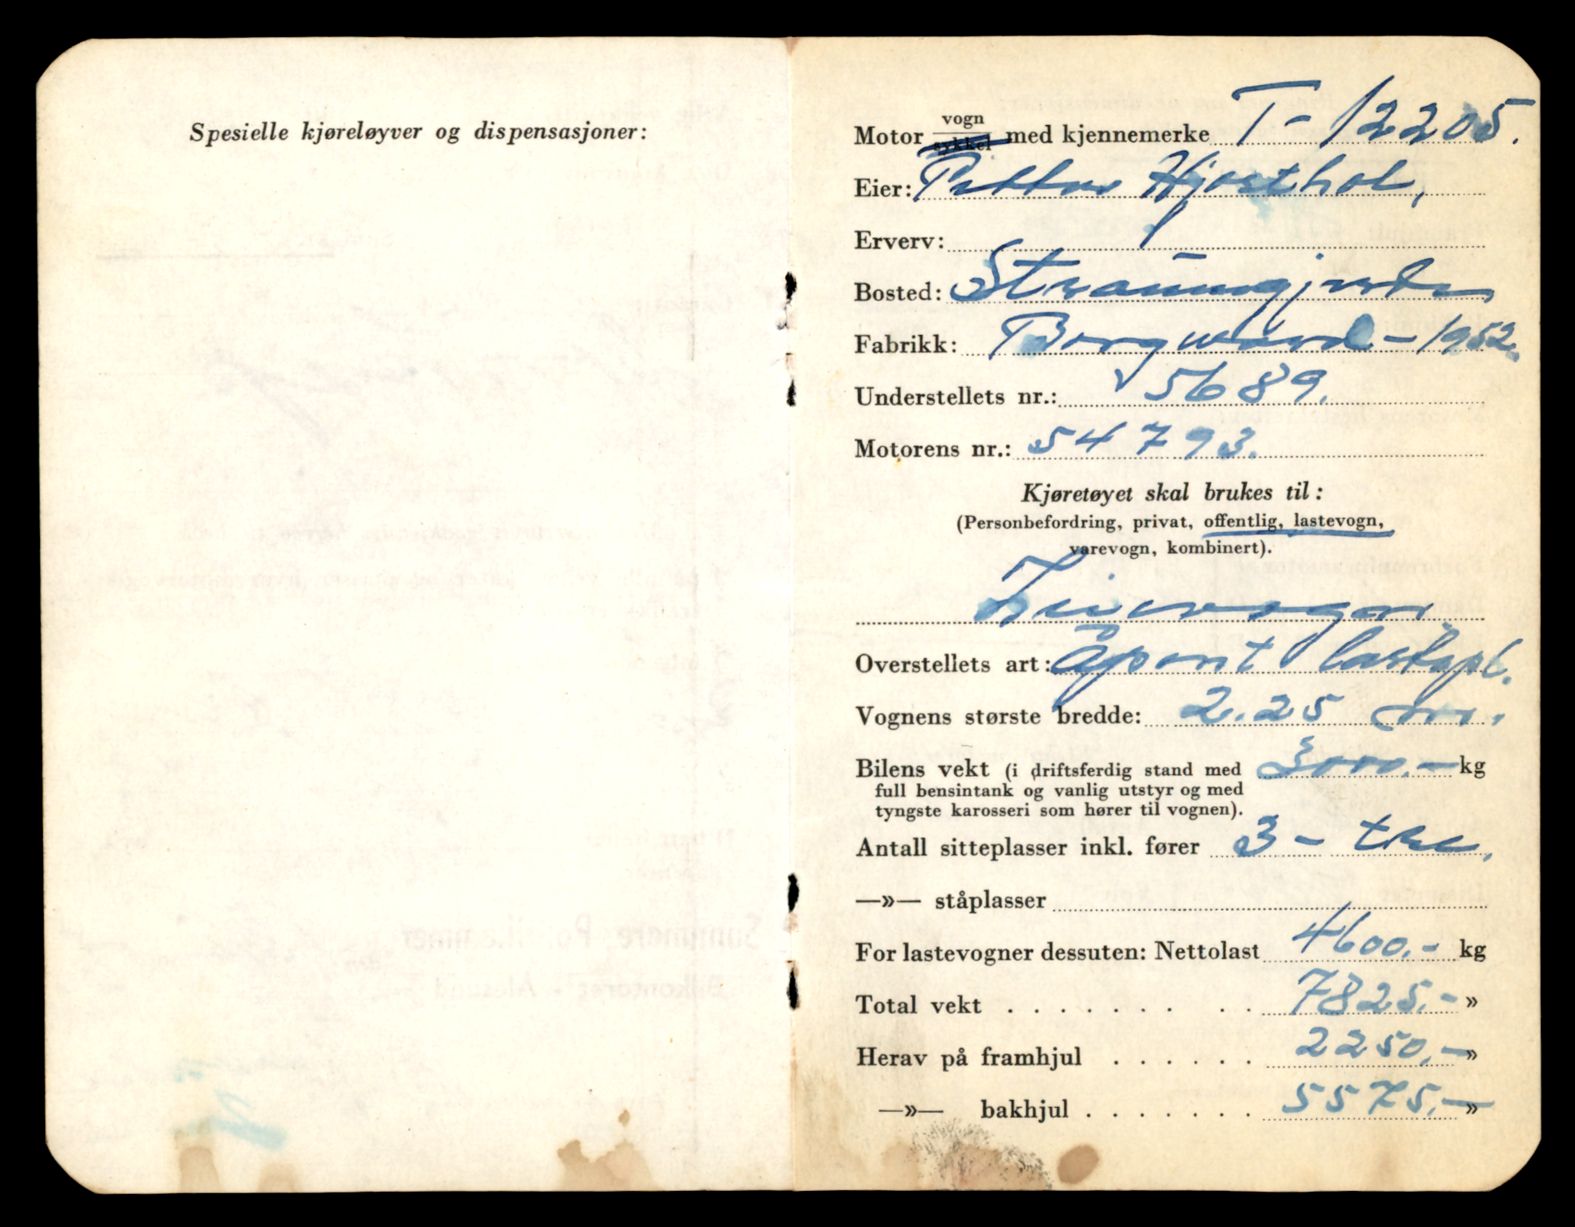 Spesielle kjøreløyver og dispensasjoner:
Motor vogn/sykkel med kjennemerke T-12205.
Eier: Petter Hjorthol,
Erverv:
Bosted: Straumgjerde
Fabrikk: Borgward - 1952.
Understellets nr.: 5689.
Motorens nr.: 54793.
Kjøretøyet skal brukes til:
(Personbefordring, privat, offentlig, lastevogn,
varevogn, kombinert).
Leievogn
Overstellets art: Åpent lastepl.
Vognens største bredde: 2.25 m.
Bilens vekt (i driftsferdig stand med 3000.- kg
full bensintank og vanlig utstyr og med
tyngste karosseri som hører til vognen).
Antall sitteplasser inkl. fører 3 - tre.
—»— ståplasser
For lastevogner dessuten: Nettolast 4600.- kg
Total vekt . . . . . . . . . 7825.- »
Herav på framhjul . . . . . . 2250.- »
—»— bakhjul . . . . . . . 5575.- »